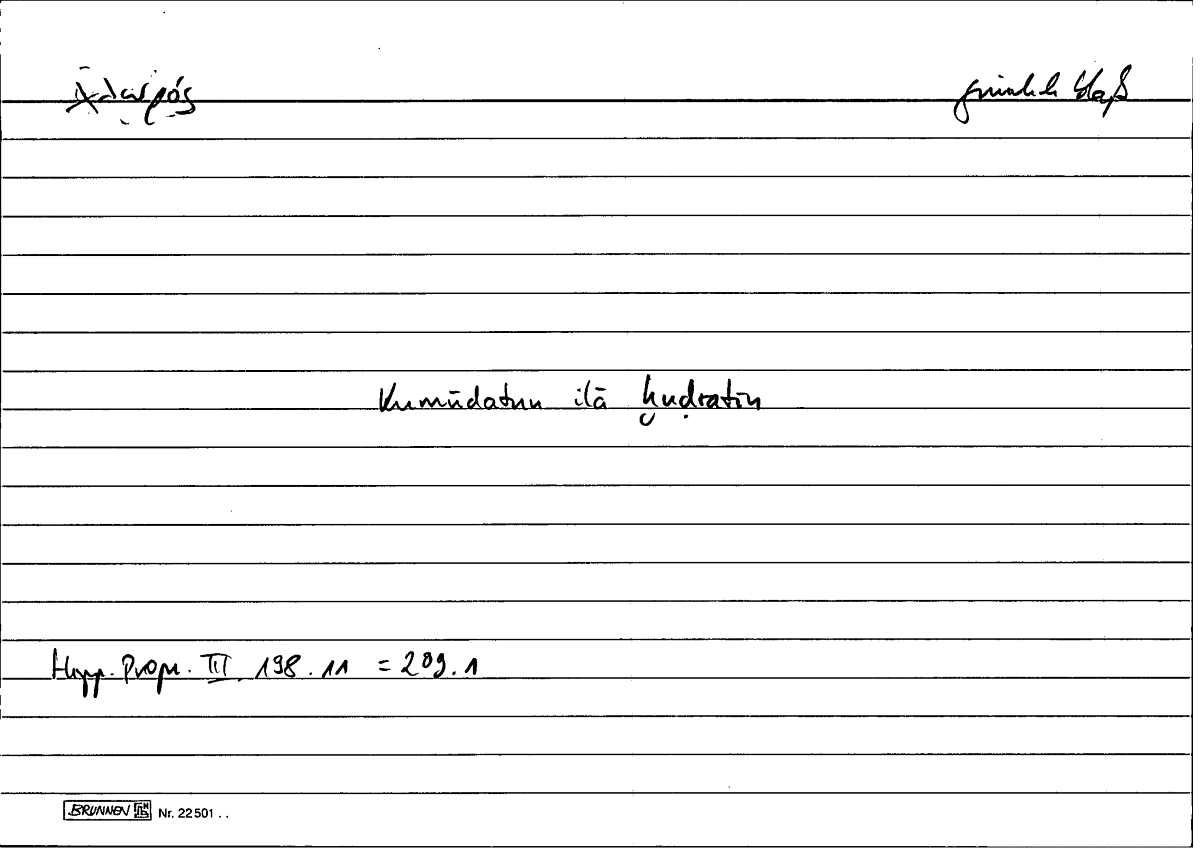 χλωρός grünlich blaß
kumūdatun ilā ḫuḍratin
Hipp. Progn. III 198.11 = 209.1
BRUNNEN Nr. 22501 . .